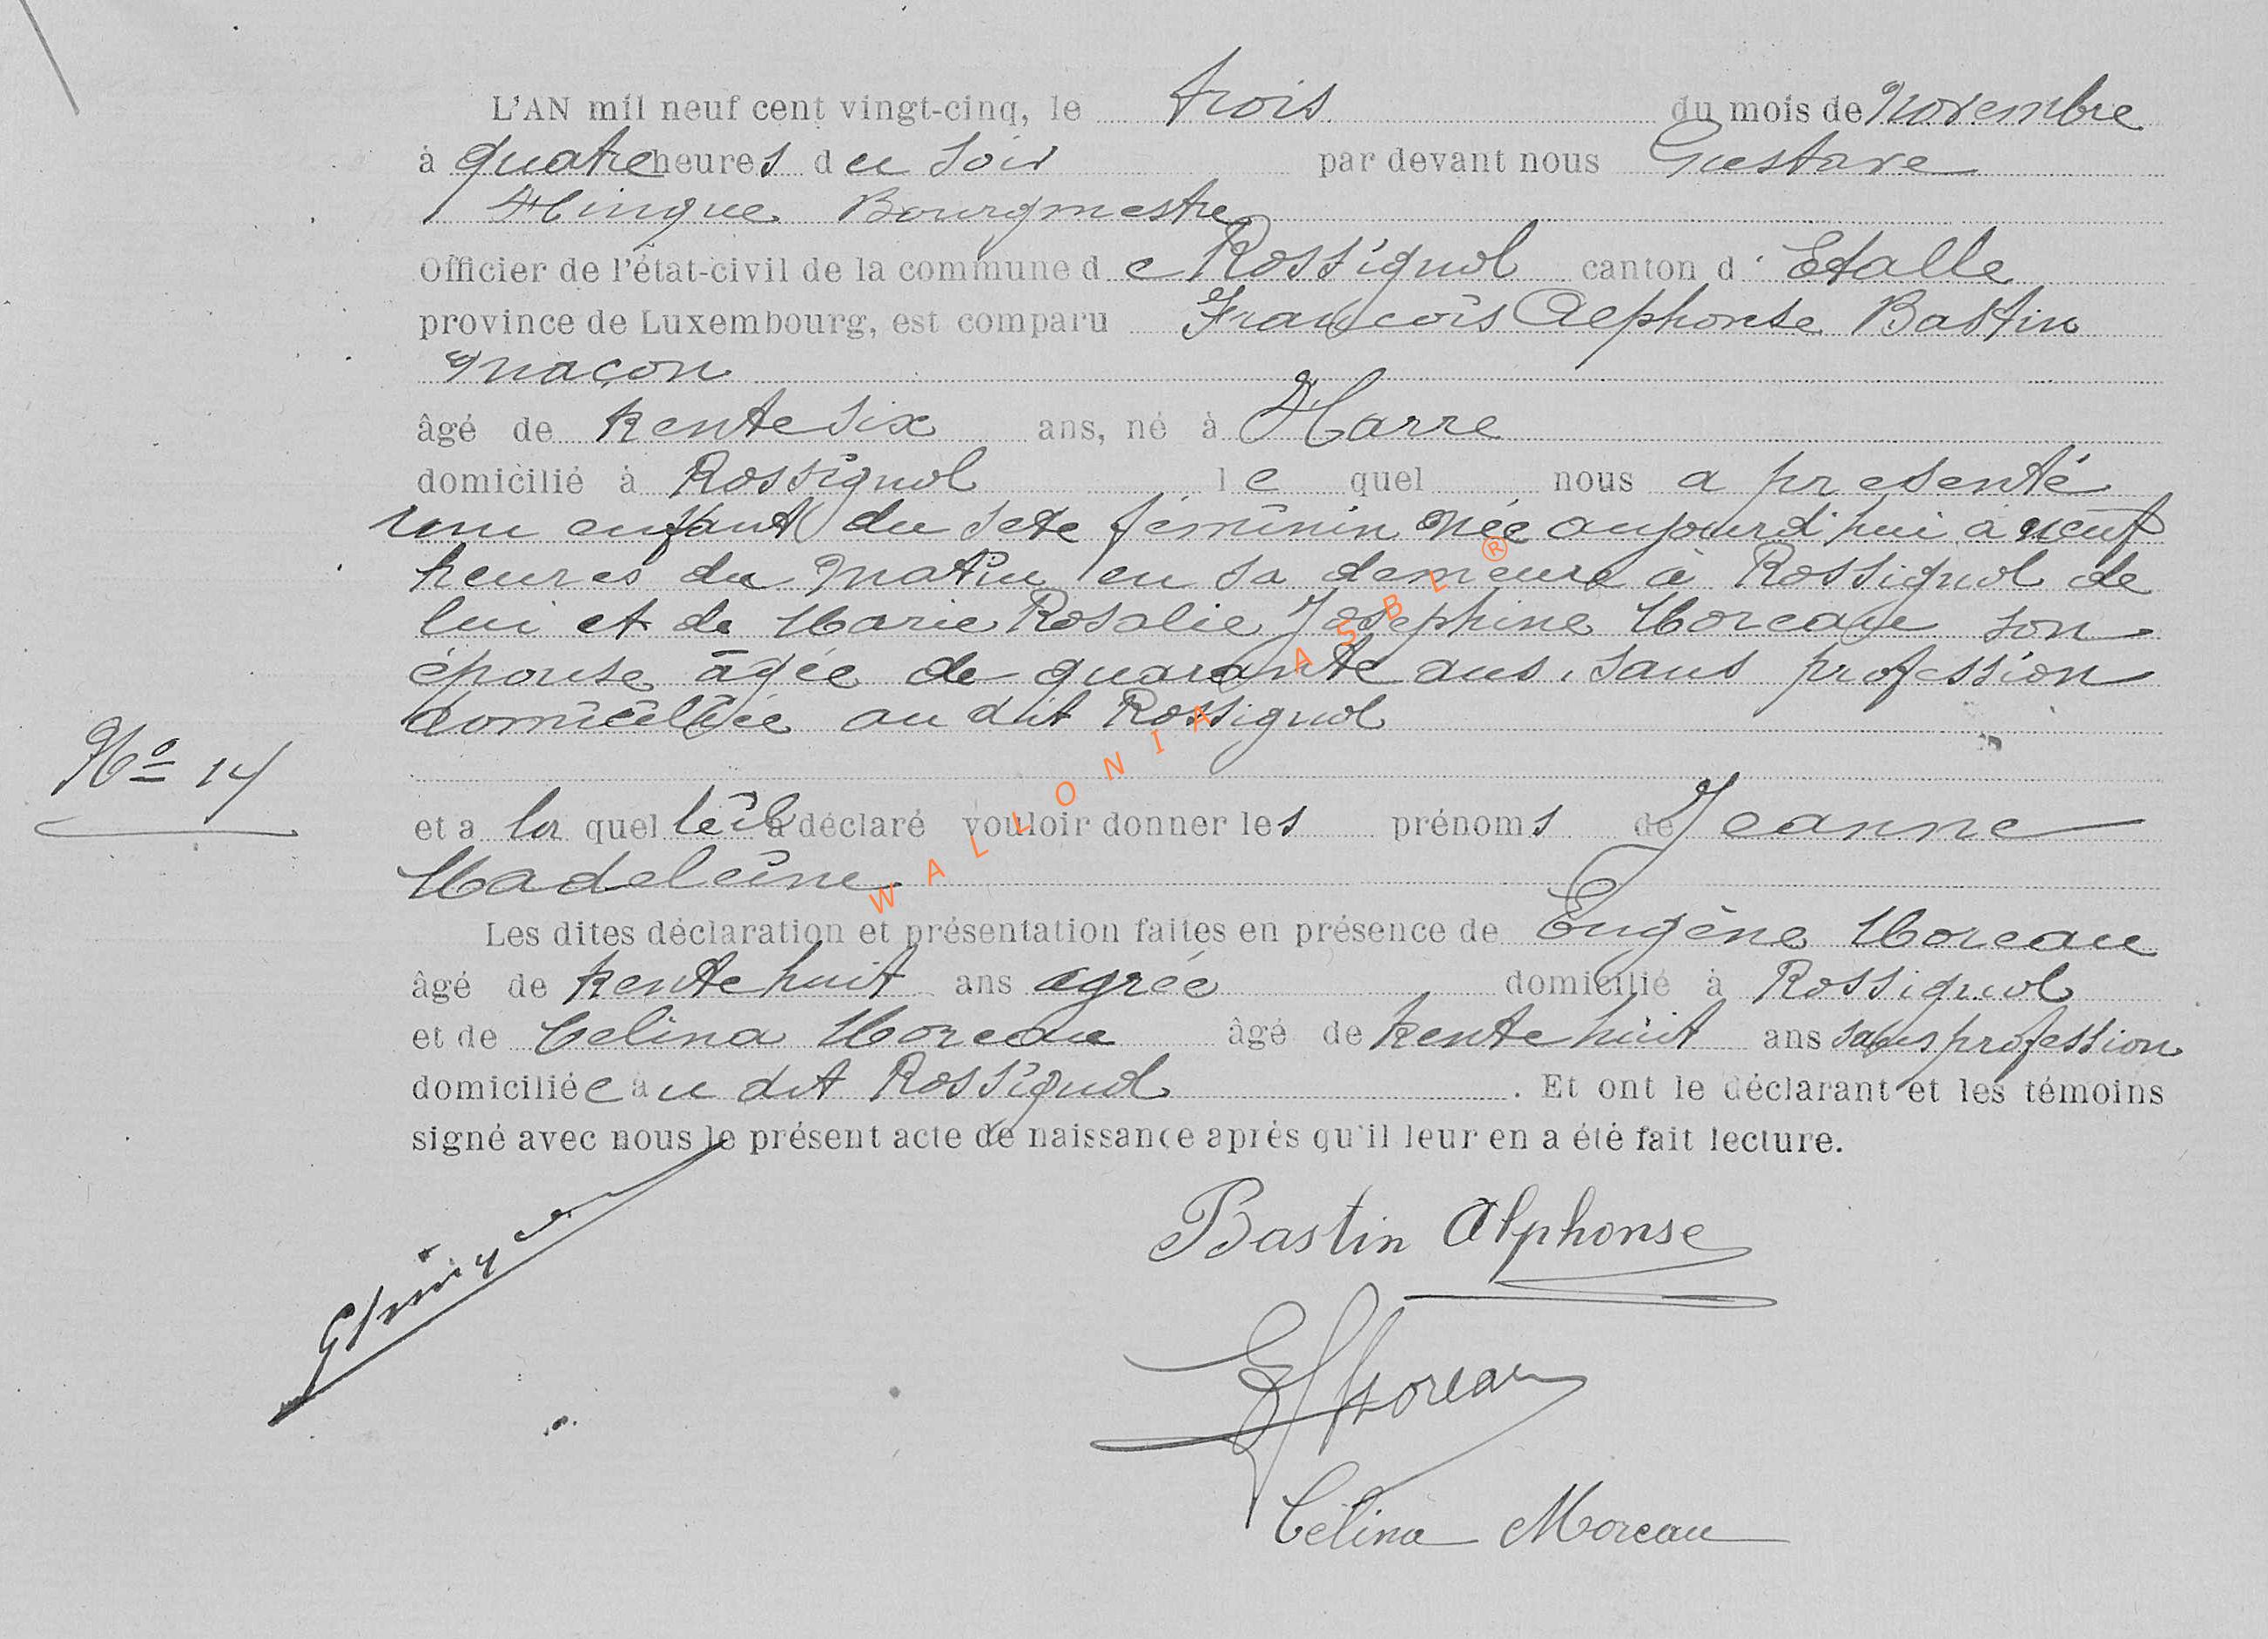 L'AN mil neuf cent vingt-cinq, le trois du mois de Novembre
à quatre heures du soir par devant nous Gustave
Hinque Bourgmestre
Officier de l'état-civil de la commune de Rossignol canton d'Etalle
province de Luxembourg, est comparu François Alphonse Bastin
Maçon
âgé de trente six ans, né à Harre
domicilié à Rossignol lequel nous a présenté
une enfant du sexe féminin née aujourd'hui à neuf
heures du matin en sa demeure à Rossignol de
lui et de Marie Rosalie Joséphine Moreau son
épouse âgée de quarante ans, sans profession
domiciliée au dit Rossignol
No 14
et a la quelle il a déclaré vouloir donner les prénoms de Jeanne
Madeleine
Les dites déclaration et présentation faites en présence de Eugène Moreau
âgé de trente huit ans agréé domicilié à Rossignol
et de Celina Moreau âgé de trente huit ans sans profession
domiciliée au dit Rossignol . Et ont le déclarant et les témoins
signé avec nous le présent acte de naissance après qu'il leur en a été fait lecture.
Bastin Alphonse
E Moreau
Célina Moreau
WALLONIA ASBL ®